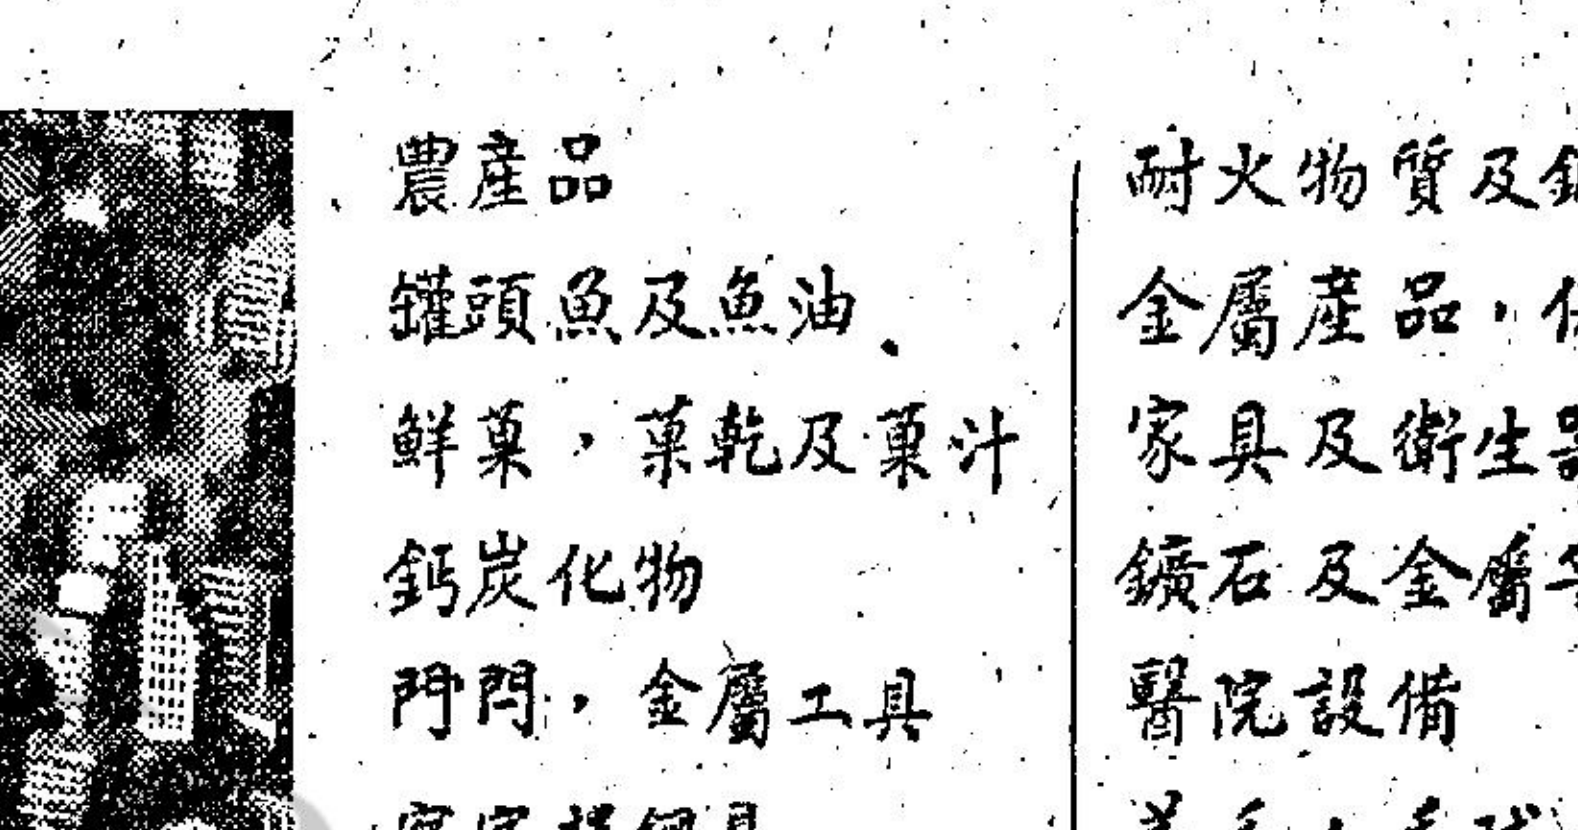 農產品
罐頭魚及魚油
鮮菓，菓乾及菓汁
鈣炭化物
門閂，金屬工具
耐火物質及
金屬產品，
家具及衛生
鑛石及金屬
醫院設備